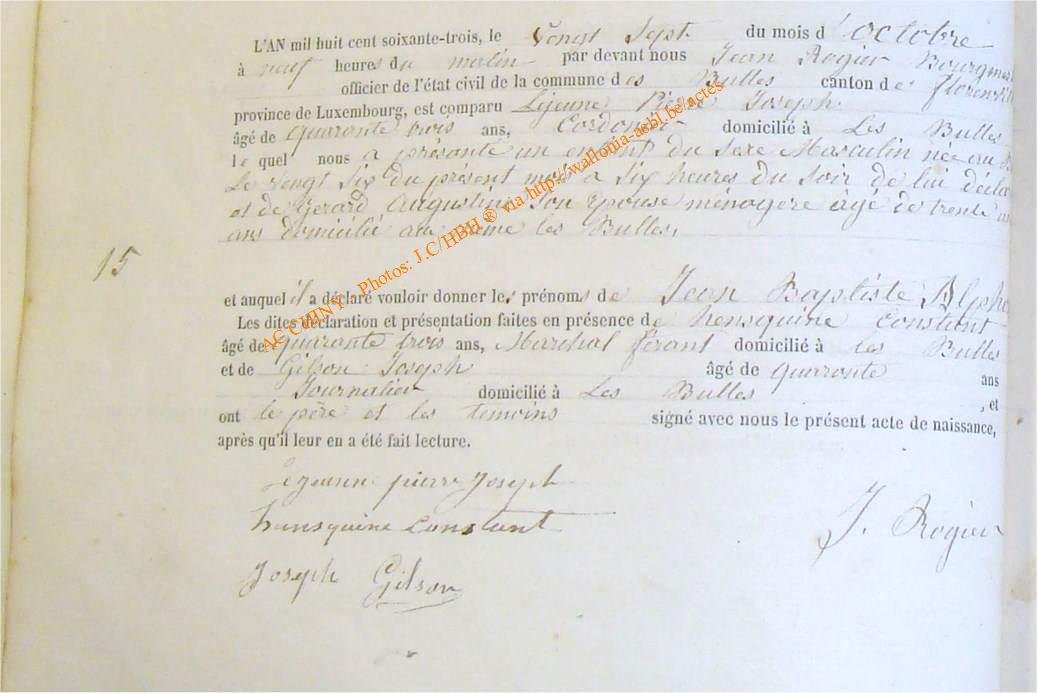 L'AN mil huit cent soixante-trois, le Vengt Sept du mois d'octobre
à neuf heures du matin par devant nous Jean Rogier Bourgme
officier de l'état civil de la commune des Bulles canton de florenvil
province de Luxembourg, est comparu Lejeune Pierre Joseph
âgé de quarante trois ans, Cordonier domicilié à Les Bulles
le quel nous a présenté un enfant du Sexe Masculin née au
Le vengt Six du présent mois a Six heures du Soir de lui décla
et de Gerard Augustine Son Epouse ménagere âgé de trente
ans domicilié au même les Bulles,
15
et auquel il a déclaré vouloir donner les prénoms de Jean Baptiste Alpho
Les dites déclaration et présentation faites en présence de hensquine Constant
âgé de quarante trois ans, Marchal férant domicilié à les Bulles
et de Gilson Joseph âgé de quarante ans
Journalier domicilié à Les Bulles , et
ont le père et les temoins signé avec nous le présent acte de naissance,
après qu'il leur en a été fait lecture.
Lejeune pierre Joseph
hensquine Constant
J. Rogier
Joseph Gilson
AC CHINY - Photos: J.C/HBH ® via http://wallonia-asbl.be/actes